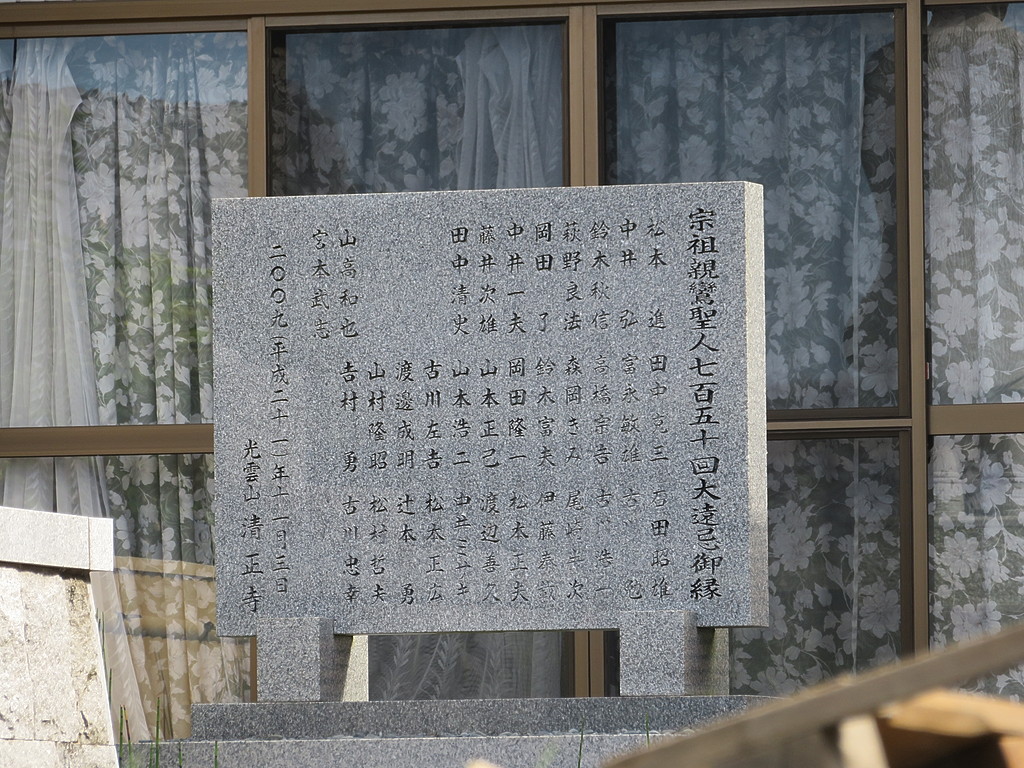 宗祖親鸞聖人七百五十回大遠忌御縁
松本 進 田中克三 吉田昭雄
中井 弘 富永敏雄 古川 勉
鈴木秋信 高橋宗吉 古川浩一
萩野良法 森岡きみ 尾崎幸次
岡田 了 鈴木富夫 伊藤泰
中井一夫 岡田隆一 松本正夫
藤井次雄 山本正己 渡辺善久
田中清史 山本浩二 中井ミユキ
古川左吉 松本正広
渡邊成明 辻本 勇
山高和也 山村隆昭 松村哲夫
宮本武志 吉村 勇 古川忠幸
二〇〇九(平成二十一)年十一月三日
光雲山 清正寺